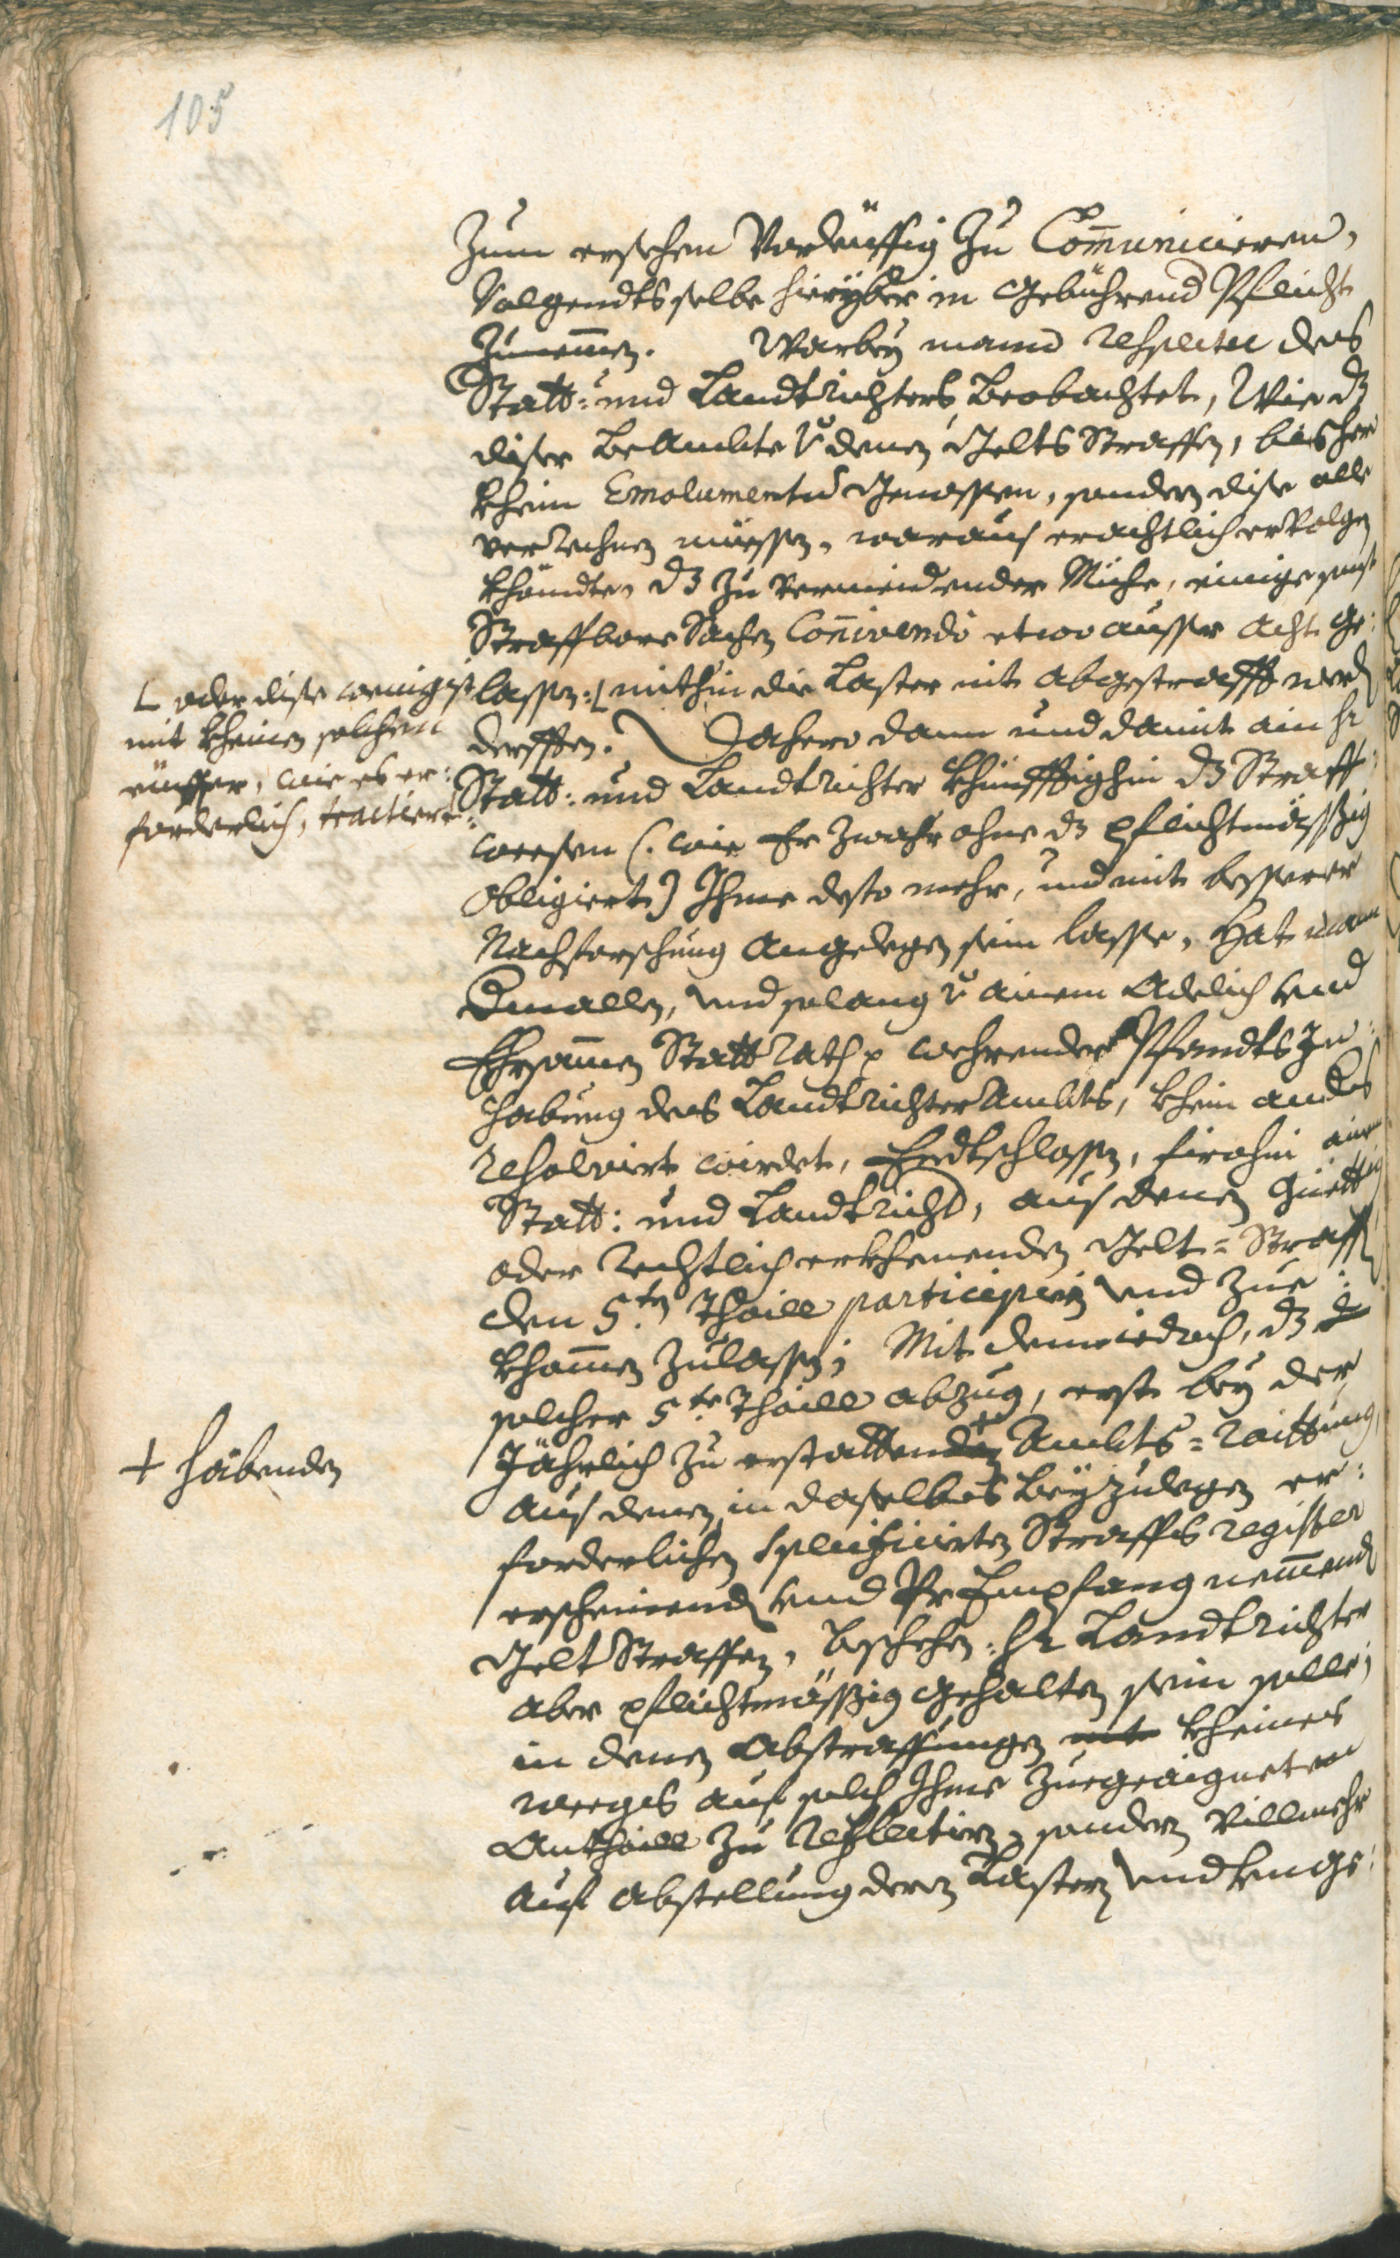 105
Zum ersehen Vorleüffig Zu Com̅unicieren,
Volgendts selbe hierÿber in Gebührend Pflicht
Zunem̅en. Warbeÿ mann respectu des
Statt- und Landtrichters Beobachtet, Wie dz
diser BeAmbte v denen Gelts Straffen, bishero
khein Emolumentum Genossen, sondern dise alle
verrechnen müessen, woraus erachtlich ervolgen
khöndte, dz zu vermeidender Mühe, einige sonst
Straffbare Sachen Con̅ivendo etwo ausser acht ge:
lassen: mithin die Laster nit abgestrafft werden
derfften. Dahero dann und damit ain Hr
Statt- und Landtrichter khünfftighin dz Straff
weesen (: wie Er zwahr ohne dz pflichtmässig
obligiert:) Ihme desto mehr, und mit besserer
Nachforschung angelegen sein lasse, Hat man
Einmallen, und solang v ainem Adelich und
Ehrsamen Statt Rath p wehrender Pfandts In:
habung des Landtrichter Ambts, khein anders
resolvirt wirdet, Endtschlossen, firohin ainem
Statt: und Landtricht, aus denen güettig
oder rechtlich erkhennenden Gelt-Straffen
den 5.ten Thaill participiern und zue:
khom̅en zulassen; Mit deme iedoch, dz
solcher 5.te Thaill abzug, erst beÿ der
Jährlich zu erstatten + Ambts-Raittung,
aus denen in daselbes beÿzulegen er:
forderlichen Specificirten Straffs register
erscheinend und Pr Empfang nem̅enden
Gelt Straffen, beschehen: Hr Landtrichter
aber pflichtmässig gehalten sein solle,
in denen Abstraffungen kheines
weegs auf solch Ihme zuegeaigneten
Anthaill zu reflectirn, sondern villmehr
auf abstellung deren Lastern und Unge:
oder dise wenigist
mit kheinem solchem
eüffer, wie es er:
forderlich, tractiert
+ habenden